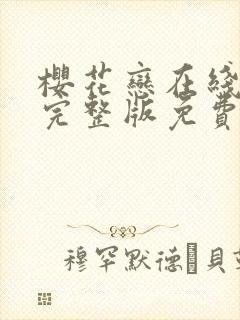 櫻花戀在綫
完整版免費
穆罕默德·貝